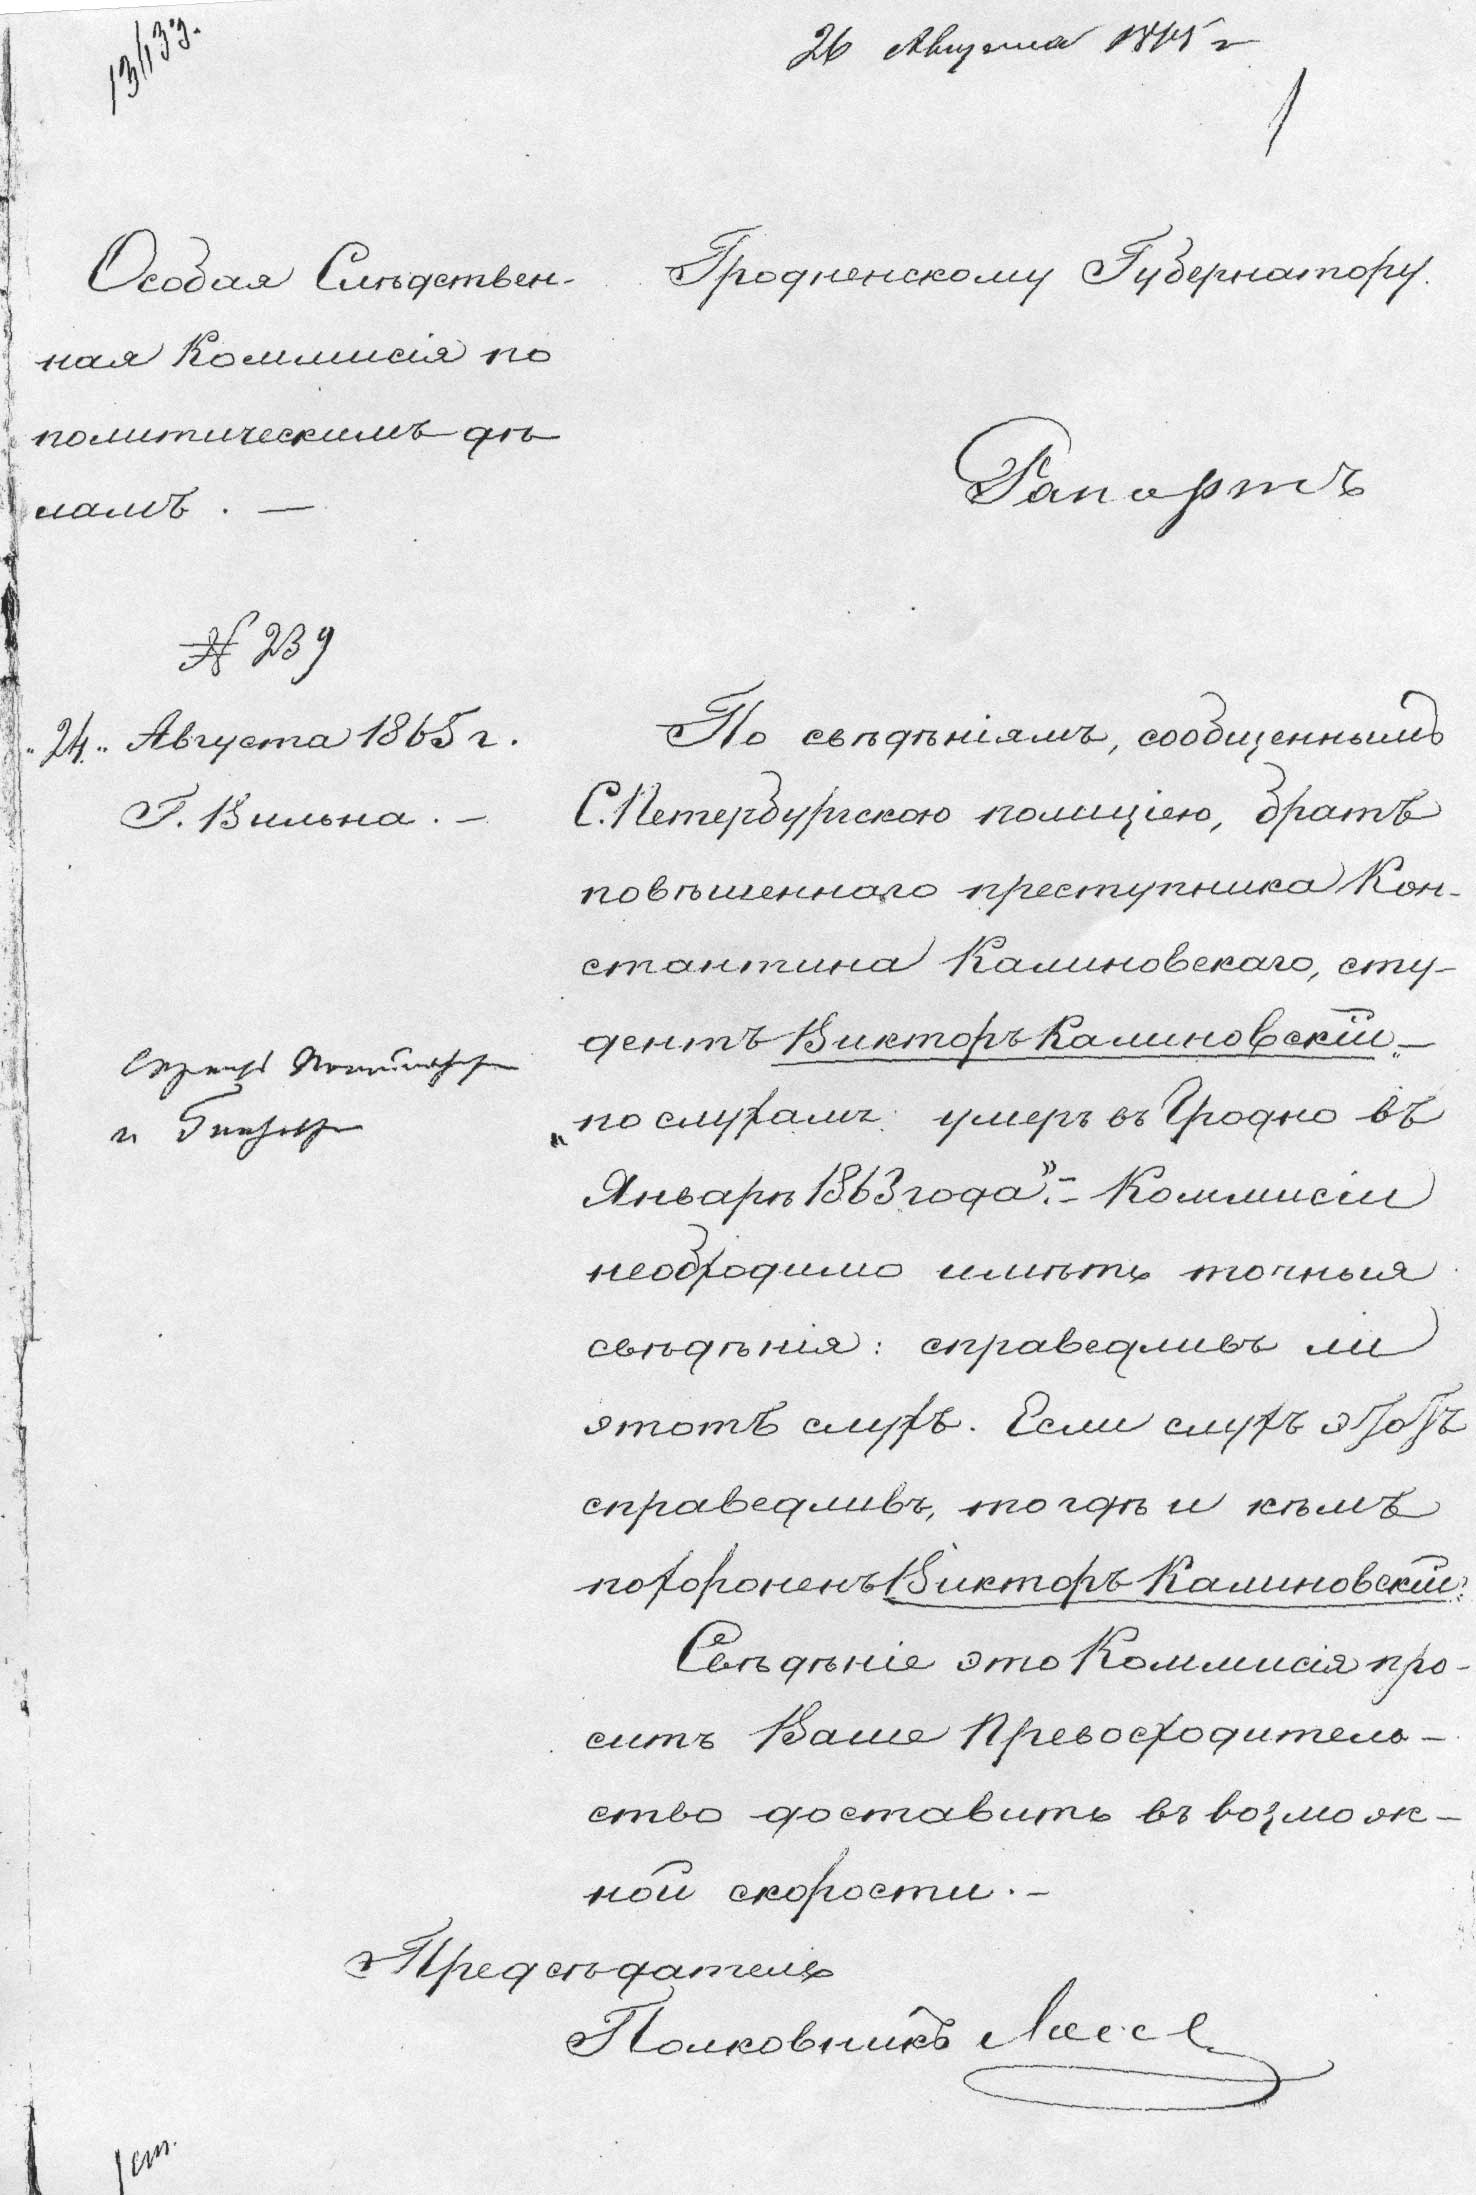 13/133.
26 Августа 1865 г
Особая Слѣдствен-
ная Коммисія по
политическимъ дѣ
ламъ. —
№ 239
"24" Августа 1865 г.
Г. Вильна. —
Гродненскому Губернатору.
Рапортъ
По свѣдѣніямъ, сообщеннымъ
С.Петербургскою полиціею, братъ
повѣшеннаго преступника Кон-
стантина Калиновскаго, сту-
дентъ Викторъ Калиновскій —
„по слухамъ умеръ въ Гродно въ
Январѣ 1863 года". — Коммисіи
необходимо имѣть точныя
свѣдѣнія: справедливъ ли
этотъ слухъ. Если слухъ этотъ
справедливъ, то гдѣ и кѣмъ
похороненъ Викторъ Калиновскій.
Свѣдѣніе это Коммисія про-
ситъ Ваше Превосходитель-
ство доставить въ возмож-
ной скорости. —
Предсѣдатель
Полковникъ Лосе
и
1 ст.